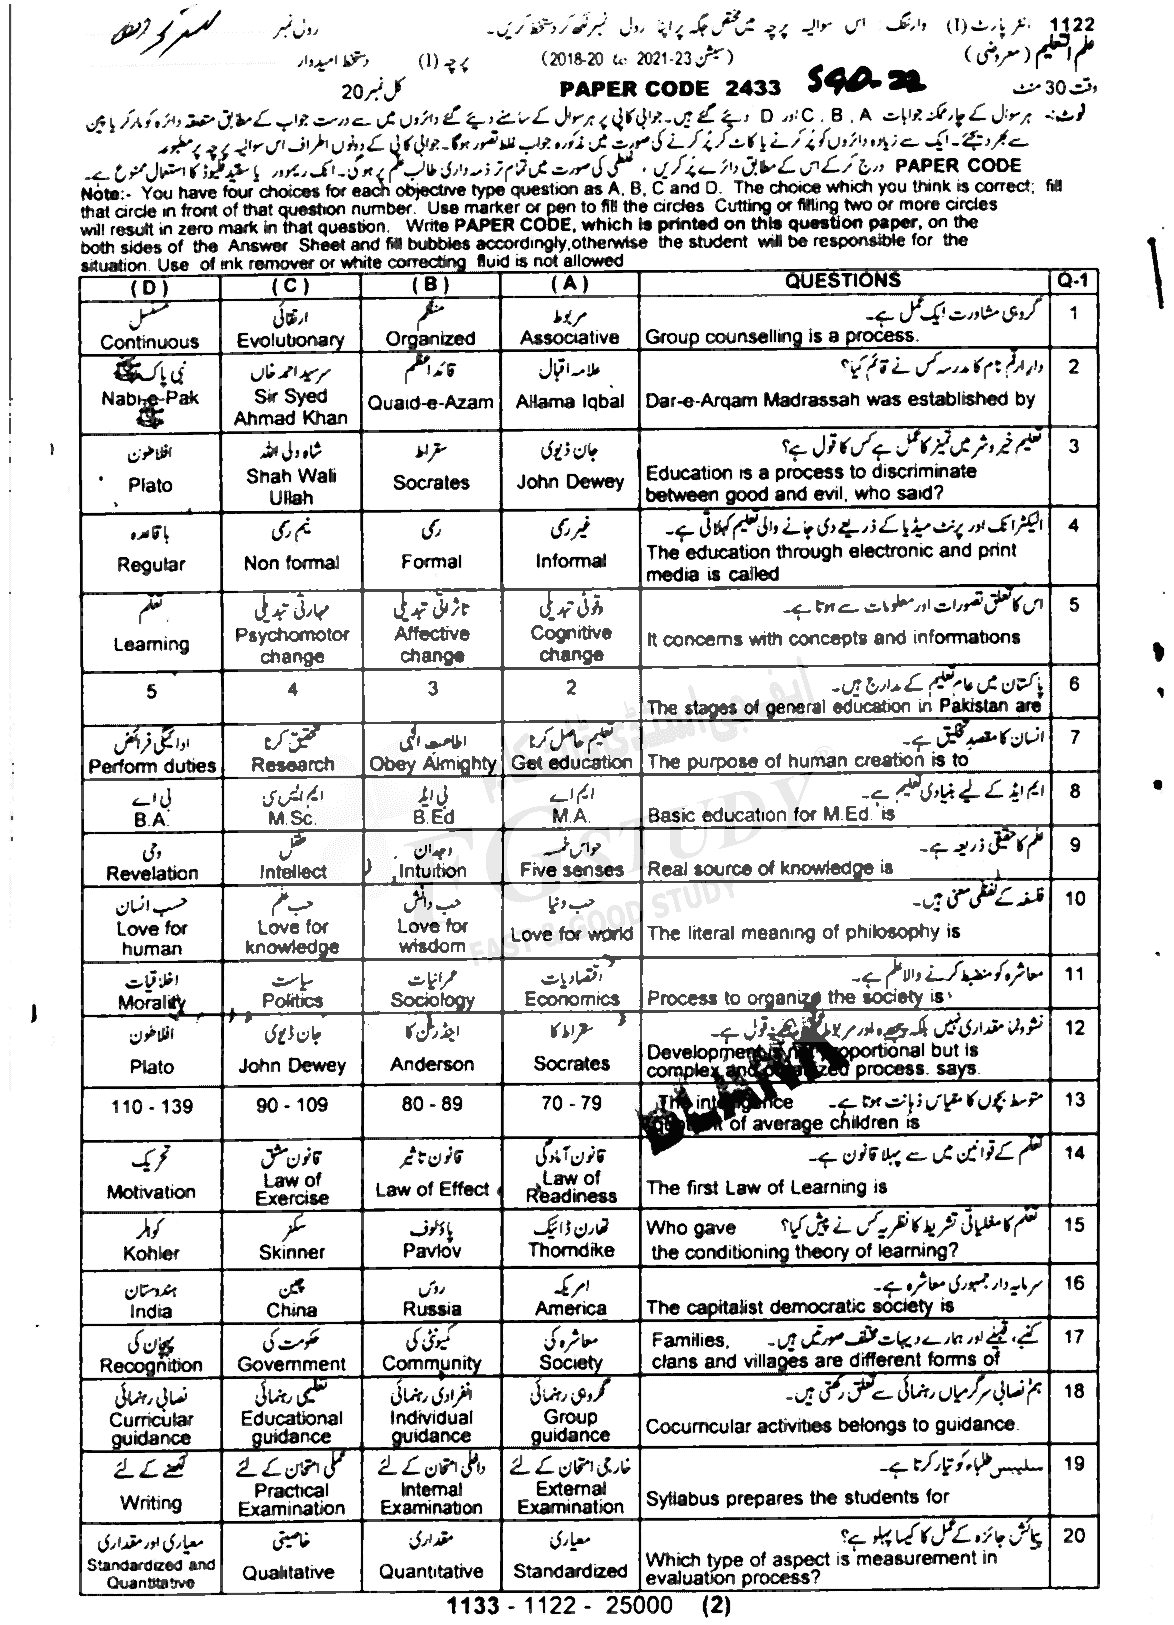 1122 انٹر پارٹ (I) وارننگ اس سوالیہ پرچہ میں مختص جگہ پر اپنا رولی نمبر لکھ کر دستخط کریں۔ رولی نمبر
علم التعلیم (معروضی) (سیشن 2018-20 تا 2021-23) پرچہ (I) دستخط امیدوار
وقت 30 منٹ PAPER CODE 2433 SGD-22 کل نمبر 20
نوٹ:- ہر سوال کے چار ممکنہ جوابات C ، B ، A اور D دیئے گئے ہیں۔ جوابی کاپی پر ہر سوال کے سامنے دیئے گئے دائروں میں سے درست جواب کے مطابق متعلقہ دائرہ کو مارکر یا پین
سے بھر دیجئے۔ ایک سے زیادہ دائروں کو پُر کرنے یا کاٹ کر پُر کرنے کی صورت میں مذکورہ جواب غلط تصور ہوگا۔ جوابی کاپی کے دونوں اطراف اس سوالیہ پرچہ پر مطبوعہ
PAPER CODE درج کر کے اس کے مطابق دائرے پُر کریں، غلطی کی صورت میں تمام تر ذمہ داری طالب علم پر ہوگی۔ انک ریمور یا سفید فلیوڈ کا استعمال ممنوع ہے۔
Note:- You have four choices for each objective type question as A, B, C and D. The choice which you think is correct; fill
that circle in front of that question number. Use marker or pen to fill the circles. Cutting or filling two or more circles
will result in zero mark in that question. Write PAPER CODE, which is printed on this question paper, on the
both sides of the Answer Sheet and fill bubbles accordingly, otherwise the student will be responsible for the
situation. Use of ink remover or white correcting fluid is not allowed
(D) (C) (B) (A) QUESTIONS Q-1
مسلسل ارتقائی منظم مربوط گروہی مشاورت ایک عمل ہے۔ 1
Continuous Evolutionary Organized Associative Group counselling is a process.
نبی پاک ﷺ سرسید احمد خاں قائد اعظم علامہ اقبال دار ارقم نام کا مدرسہ کس نے قائم کیا؟ 2
Nabi-e-Pak ﷺ Sir Syed Ahmad Khan Quaid-e-Azam Allama Iqbal Dar-e-Arqam Madrassah was established by
افلاطون شاہ ولی اللہ سقراط جان ڈیوی تعلیم خیر و شر میں تمیز کا عمل ہے کس کا قول ہے؟ 3
Plato Shah Wali Ullah Socrates John Dewey Education is a process to discriminate
between good and evil, who said?
باقاعدہ نیم رسمی رسمی غیر رسمی الیکٹرانک اور پرنٹ میڈیا کے ذریعے دی جانے والی تعلیم کہلاتی ہے۔ 4
Regular Non formal Formal Informal The education through electronic and print
media is called
تعلم مہارتی تبدیلی تاثراتی تبدیلی وقوفی تبدیلی اس کا تعلق تصورات اور معلومات سے ہوتا ہے۔ 5
Learning Psychomotor change Affective change Cognitive change It concerns with concepts and informations
پاکستان میں عام تعلیم کے مدارج ہیں۔ 6
5 4 3 2 The stages of general education in Pakistan are
ادائیگی فرائض تحقیق کرنا اطاعت الٰہی تعلیم حاصل کرنا انسان کا مقصد تخلیق ہے۔ 7
Perform duties Research Obey Almighty Get education The purpose of human creation is to
بی اے ایم ایس سی بی ایڈ ایم اے ایم ایڈ کے لیے بنیادی تعلیم ہے۔ 8
B.A. M.Sc. B.Ed M.A. Basic education for M.Ed. is
وحی عقل وجدان حواس خمسہ علم کا حقیقی ذریعہ ہے۔ 9
Revelation Intellect Intuition Five senses Real source of knowledge is
حب انسان حب علم حب دانش حب دنیا فلسفہ کے لفظی معنی ہیں۔ 10
Love for human Love for knowledge Love for wisdom Love for world The literal meaning of philosophy is
اخلاقیات سیاست عمرانیات اقتصادیات معاشرہ کو منضبط کرنے والا علم ہے۔ 11
Morality Politics Sociology Economics Process to organize the society is
افلاطون جان ڈیوی اینڈرسن کا سقراط کا نشوونما مقداری نہیں بلکہ پیچیدہ اور مربوط قول ہے۔ 12
Plato John Dewey Anderson Socrates Development is not proportional but is
complex and organized process. says.
110 - 139 90 - 109 80 - 89 70 - 79 The intelligence متوسط بچوں کا مقیاس ذہانت ہوتا ہے۔ 13
quotient of average children is
BLANK
تحریک قانون مشق قانون تاثیر قانون آمادگی تعلم کے قوانین میں سے پہلا قانون ہے۔ 14
Motivation Law of Exercise Law of Effect Law of Readiness The first Law of Learning is
کوہلر سکنر پاؤلوف تھارن ڈائیک Who gave تعلم کا فعلیاتی تشریط کا نظریہ کس نے پیش کیا؟ 15
Kohler Skinner Pavlov Thorndike the conditioning theory of learning?
ہندوستان چین روس امریکہ سرمایہ دار جمہوری معاشرہ ہے۔ 16
India China Russia America The capitalist democratic society is
پہچان کی حکومت کی کمیونٹی کی معاشرہ کی Families, کنبے، قبیلے اور ہمارے دیہات مختلف صورتیں ہیں۔ 17
Recognition Government Community Society clans and villages are different forms of
نصابی رہنمائی تعلیمی رہنمائی انفرادی رہنمائی گروہی رہنمائی ہم نصابی سرگرمیاں رہنمائی سے تعلق رکھتی ہیں۔ 18
Curricular guidance Educational guidance Individual guidance Group guidance Cocurricular activities belongs to guidance.
لکھنے کے لئے عملی امتحان کے لئے داخلی امتحان کے لئے خارجی امتحان کے لئے سلیبس طلباء کو تیار کرتا ہے۔ 19
Writing Practical Examination Internal Examination External Examination Syllabus prepares the students for
معیاری اور مقداری خاصیتی مقداری معیاری پیمائش جائزہ کے عمل کا کیسا پہلو ہے؟ 20
Standardized and Quantitative Qualitative Quantitative Standardized Which type of aspect is measurement in
evaluation process?
1133 - 1122 - 25000 (2)
ایف جی اسٹڈی ڈاٹ کام
FG STUDY ®
FAST & GOOD STUDY